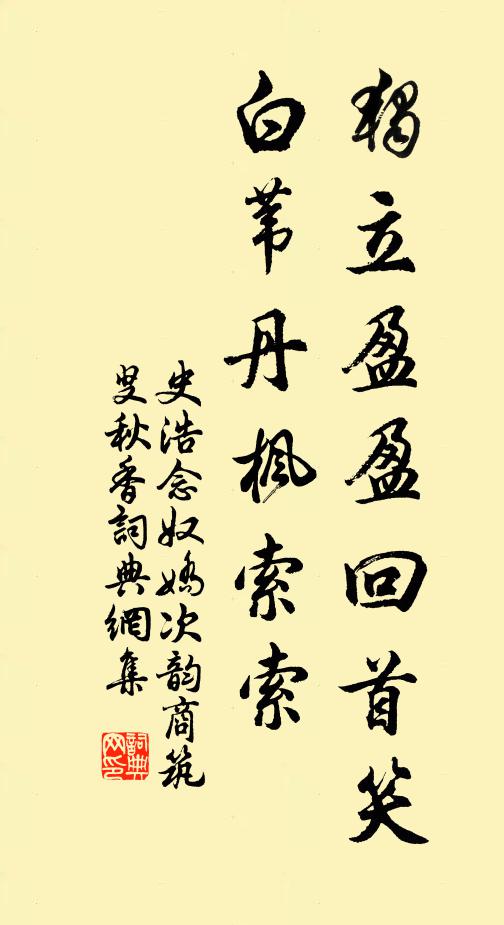 獨立盈盈回首笑
白苇丹楓索索
史浩念奴嬌次韵商筑
叟秋香詞典網集
詞典網印